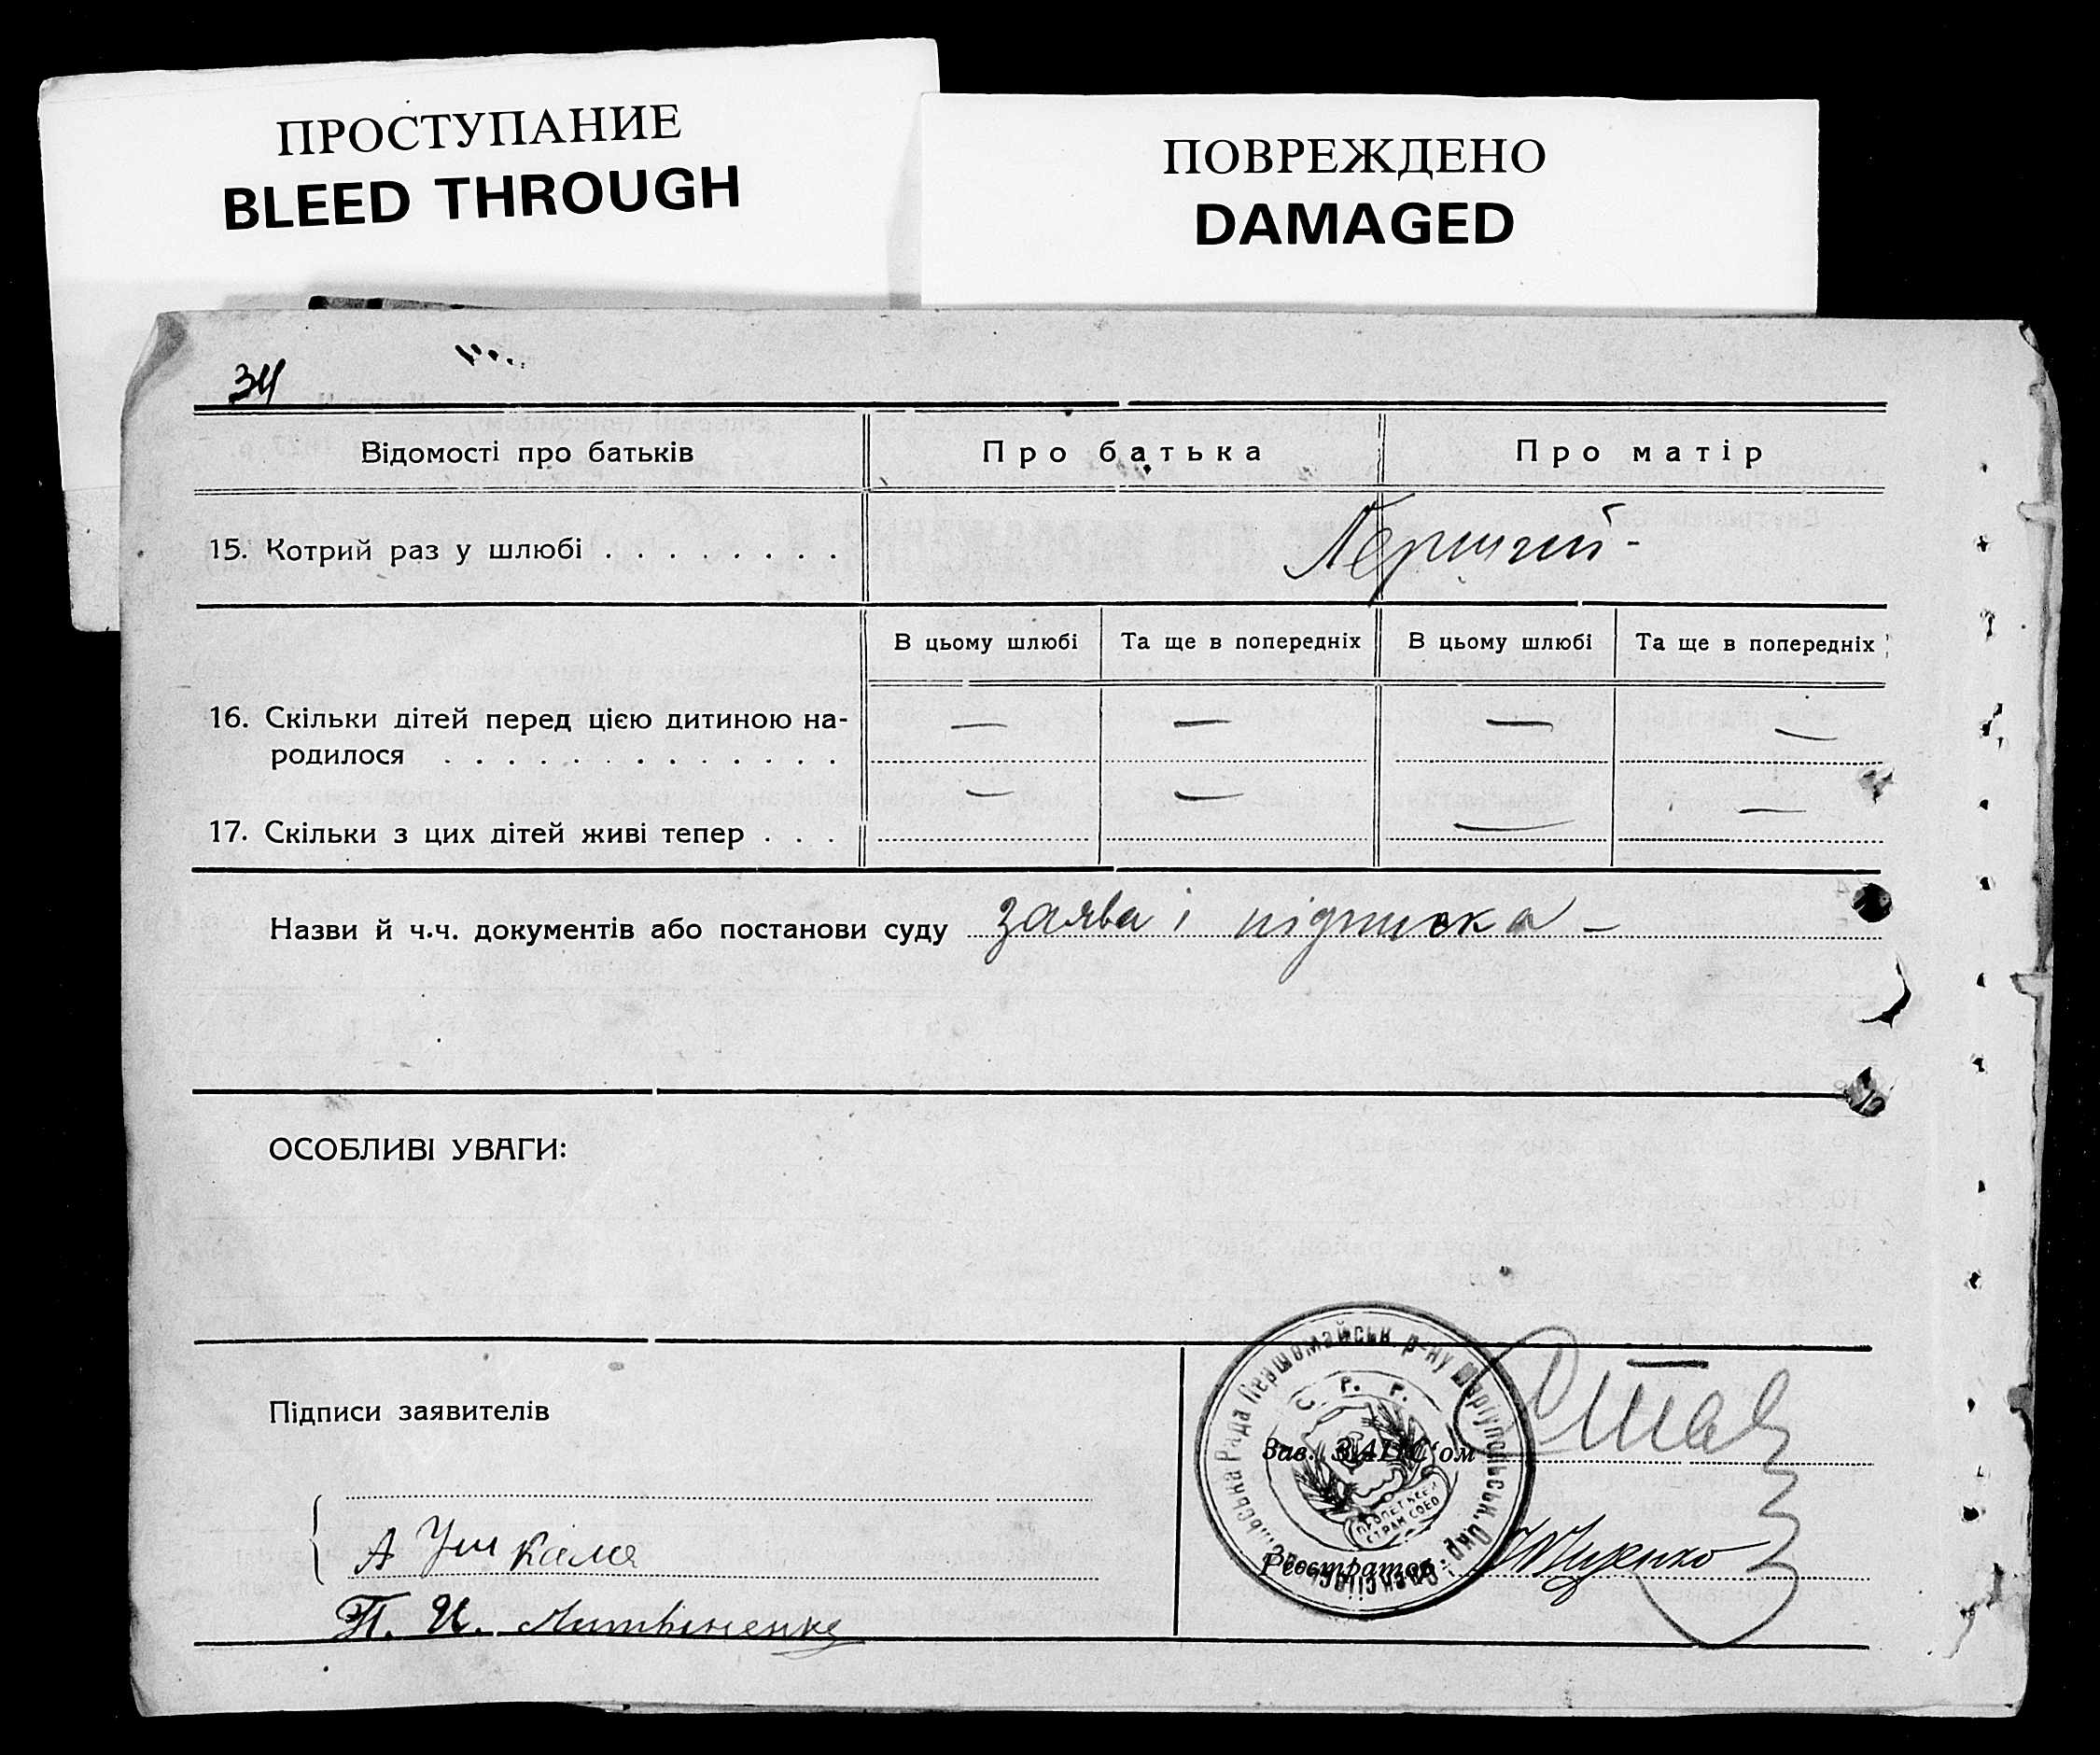 ПРОСТУПАНИЕ
BLEED THROUGH
ПОВРЕЖДЕНО
DAMAGED
34
Відомості про батьків
Про батька
Про матір
15. Котрий раз у шлюбі . . . . . . . .
Перший -
В цьому шлюбі
Та ще в попередніх
В цьому шлюбі
Та ще в попередніх
16. Скільки дітей перед цією дитиною на-
родилося . . . . . . . . . . . . .
— — — —
17. Скільки з цих дітей живі тепер . . .
— — — —
Назви й ч.ч. документів або постанови суду заява і підписка —
ОСОБЛИВІ УВАГИ:
Підписи заявителів
Рада Першомайськ. р-ну Маріупольськ. Окр.
Зав. ЗАГС'ом
Реєстратор
П. И. Литвиненко